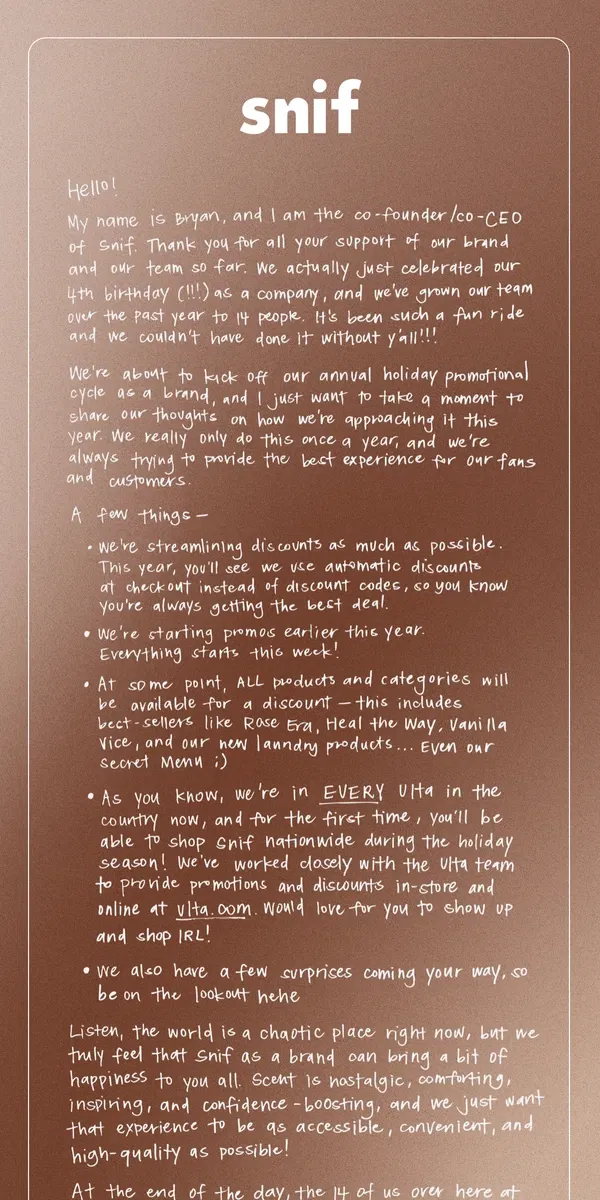 snif
Hello!
My name is Bryan, and I am the co-founder/co-CEO
of Snif. Thank you for all your support of our brand
and our team so far. We actually just celebrated our
4th birthday (!!!) as a company, and we've grown our team
over the past year to 14 people. It's been such a fun ride
and we couldn't have done it without y'all!!!
We're about to kick off our annual holiday promotional
cycle as a brand, and I just want to take a moment to
share our thoughts on how we're approaching it this
year. We really only do this once a year, and we're
always trying to provide the best experience for our fans
and customers.
A few things —
• We're streamlining discounts as much as possible.
This year, you'll see we use automatic discounts
at checkout instead of discount codes, so you know
you're always getting the best deal.
• We're starting promos earlier this year.
Everything starts this week!
• At some point, ALL products and categories will
be available for a discount — this includes
best-sellers like Rose Era, Heal the Way, Vanilla
Vice, and our new laundry products... Even our
secret Menu ;)
• As you know, we're in EVERY Ulta in the
country now, and for the first time, you'll be
able to shop Snif nationwide during the holiday
season! We've worked closely with the Ulta team
to provide promotions and discounts in-store and
online at ulta.com. Would love for you to show up
and shop IRL!
• We also have a few surprises coming your way, so
be on the lookout hehe
Listen, the world is a chaotic place right now, but we
truly feel that Snif as a brand can bring a bit of
happiness to you all. Scent is nostalgic, comforting,
inspiring, and confidence-boosting, and we just want
that experience to be as accessible, convenient, and
high-quality as possible!
At the end of the day, the 14 of us over here at